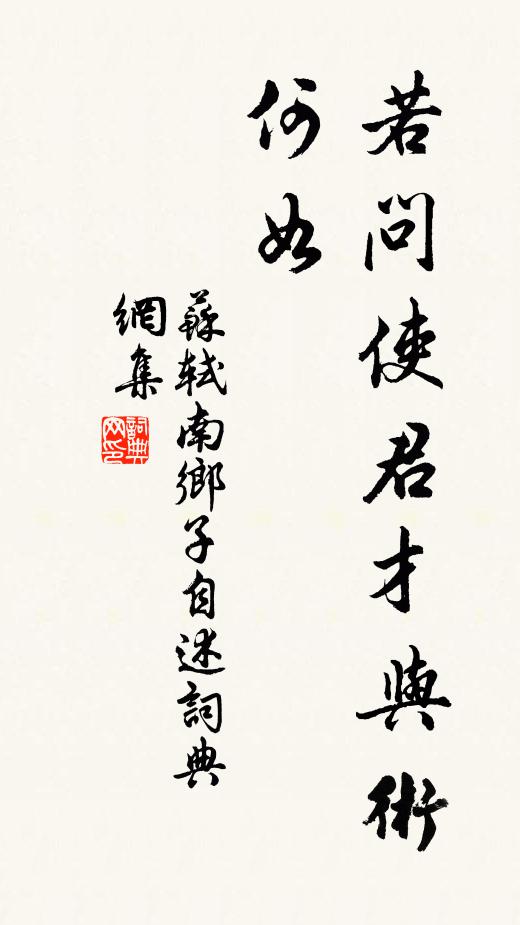 若問使君才與術
何如
蘇軾南鄉子自述詞典
網集
詞典
网印